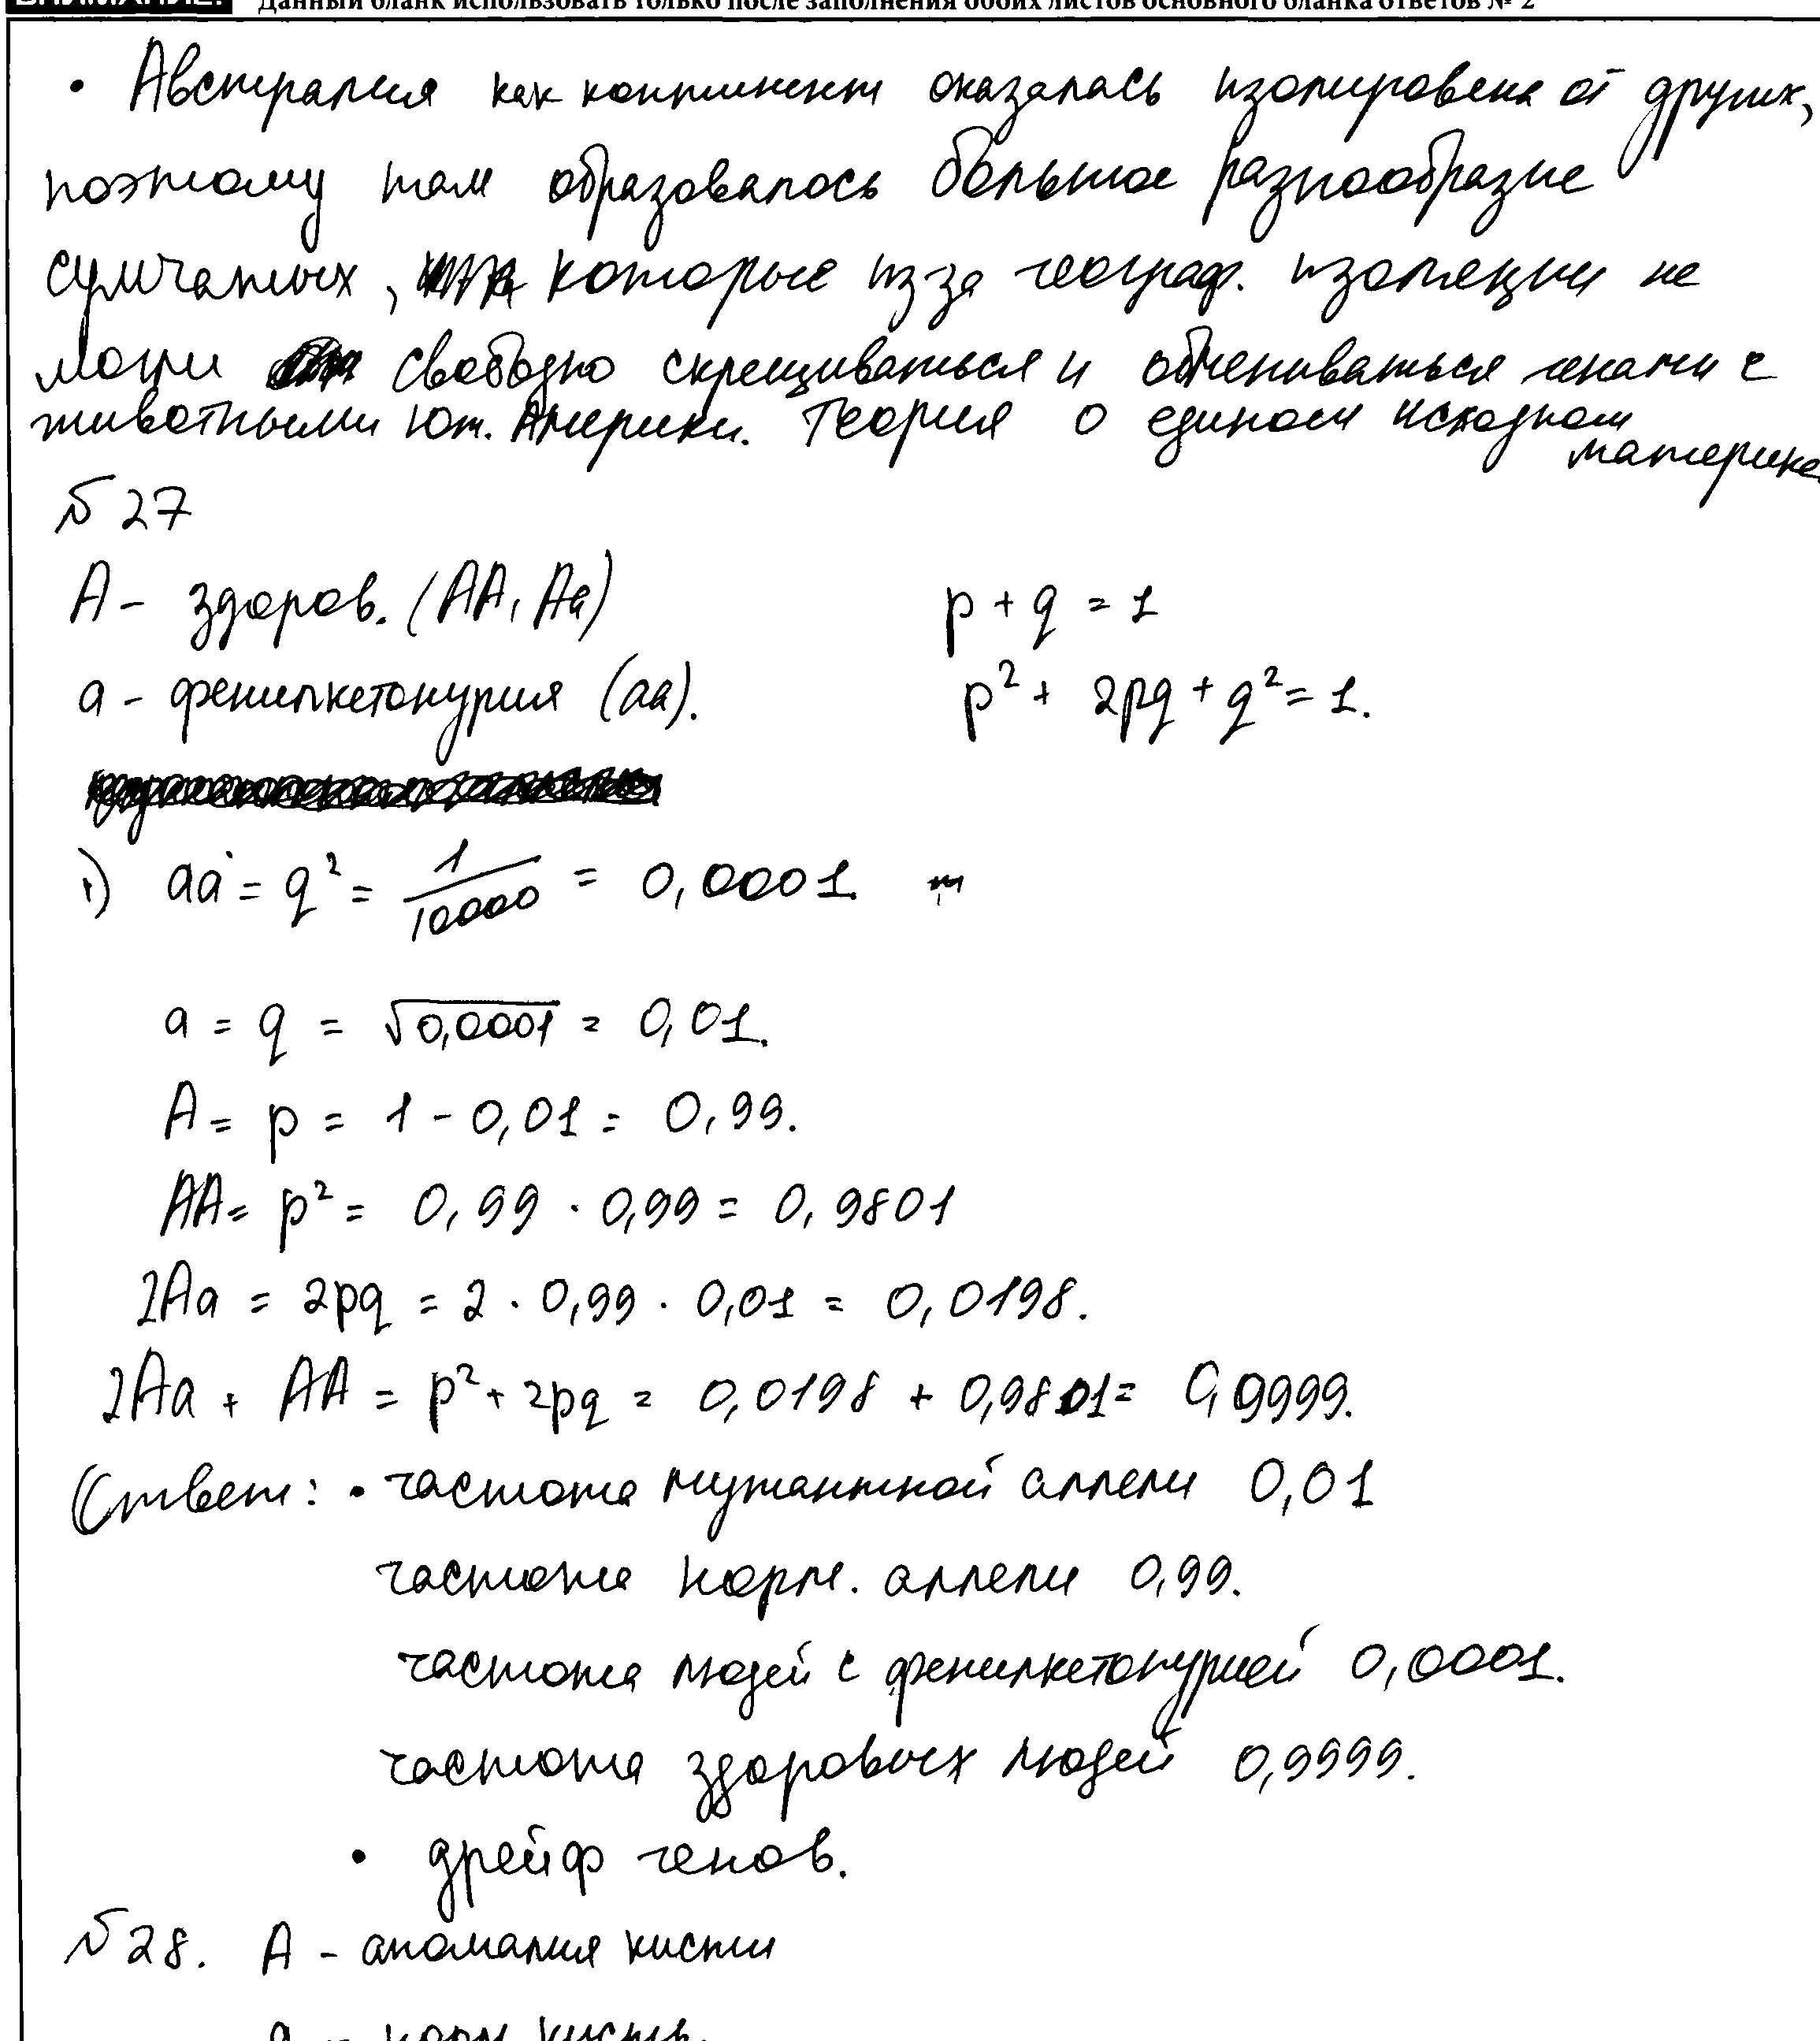 ВНИМАНИЕ! Данный бланк использовать только после заполнения обоих листов основного бланка ответов № 2
• Австралия как континент оказалась изолирована от других,
поэтому там образовалось большое разнообразие
сумчатых, которые из-за географ. изоляции не
могли свободно скрещиваться и обмениваться генами с
животными Юж. Америки. Теория о едином исходном
материке
№ 27
А - здоров. (АА, Аа)
p + q = 1
а - фенилкетонурия (аа).
p² + 2pq + q² = 1.
1) аа = q² = 1/10000 = 0,0001.
а = q = √0,0001 = 0,01.
А = p = 1 - 0,01 = 0,99.
АА = p² = 0,99 · 0,99 = 0,9801
2Аа = 2pq = 2 · 0,99 · 0,01 = 0,0198.
2Аа + АА = p² + 2pq = 0,0198 + 0,9801 = 0,9999.
Ответ: • частота мутантной аллели 0,01
частота норм. аллели 0,99.
частота людей с фенилкетонурией 0,0001.
частота здоровых людей 0,9999.
• дрейф генов.
№ 28. А - аномалия кисти
а - норм. кисть.